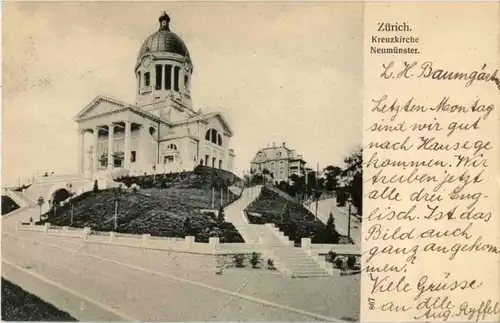 Zürich.
Kreuzkirche
Neumünster.
L. H. Baumgärtner
Letzten Montag
sind wir gut
nach Hause ge
kommen. Wir
treiben jetzt
alle drei Eng-
lisch. Ist das
Bild auch
ganz angekom
men.
Viele Grüsse
an Alle
Aug. Ryffel
867